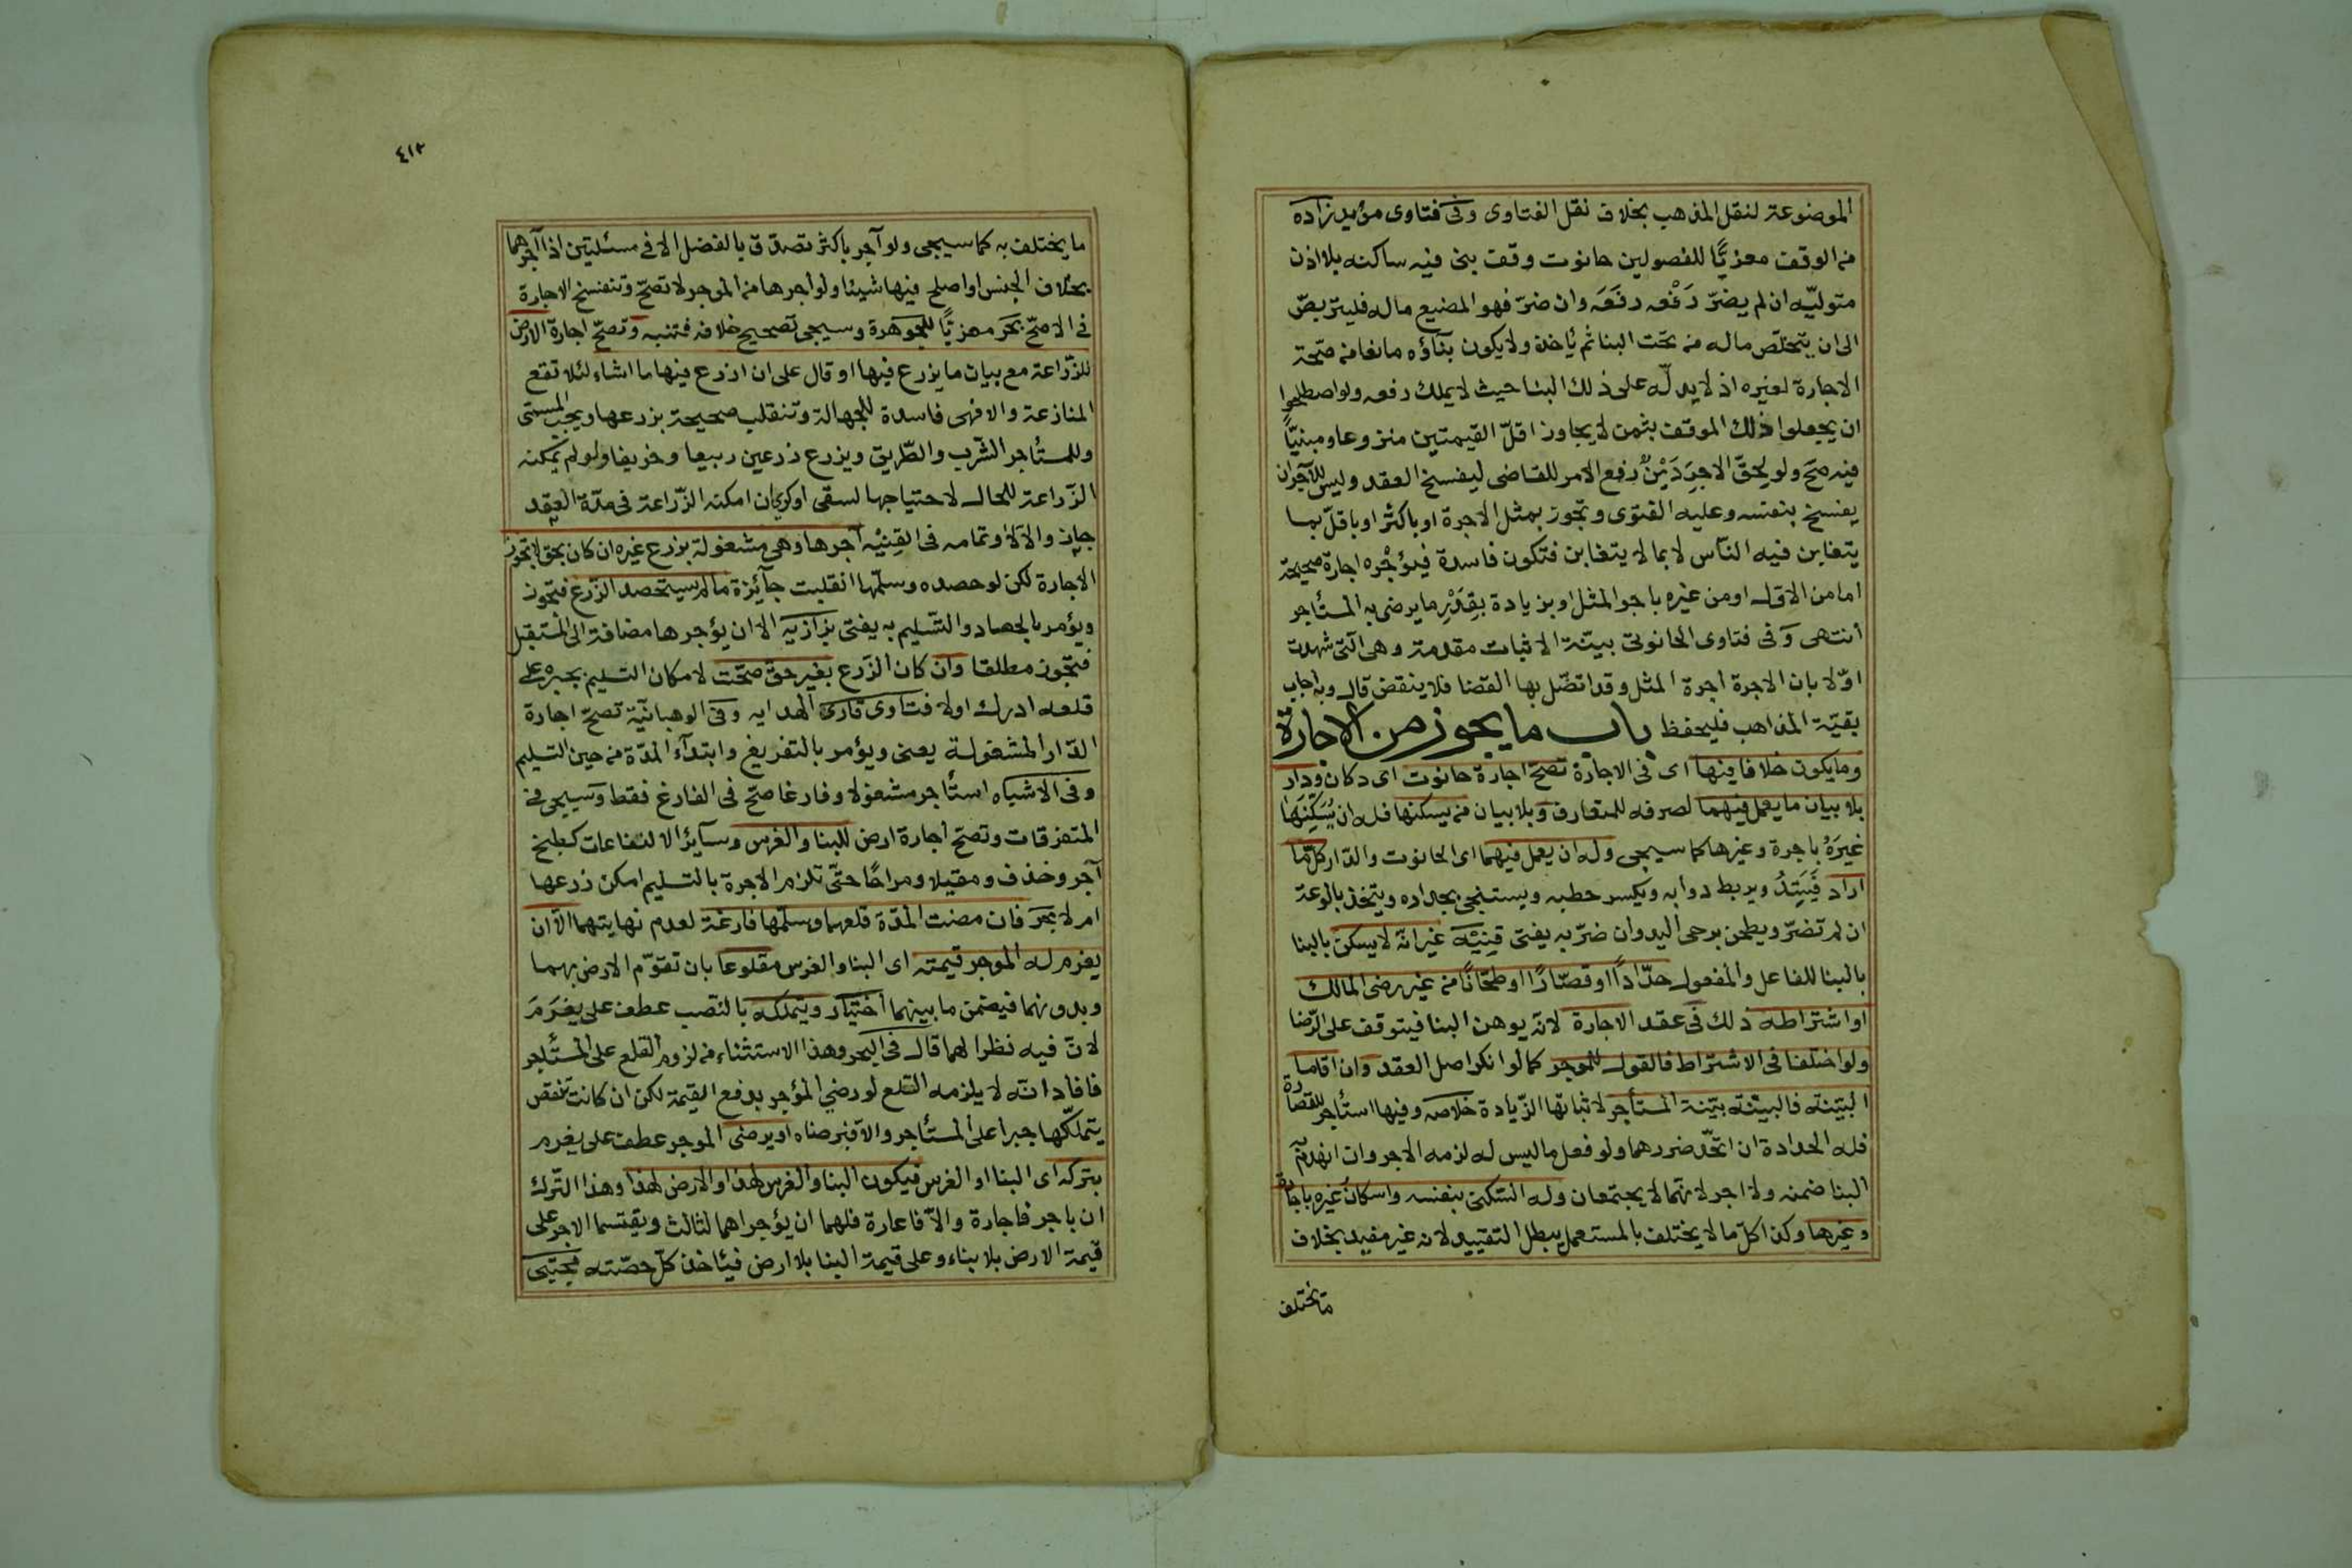 الموضوعة لنقل المذهب بخلاف نقل الفتاوى وفى فتاوى مؤيد زاده
من الوقف معزيًا للفصولين حانوت وقف بنى فيه ساكنه بلا اذن
متوليّه ان لم يضرّ رَفْعه رفَعَه وان ضرّ فهو المضيع ماله فليتربصّ
الى ان يتخلّص ماله من تحت البنا ثم يأخذه ولا يكون بناؤه مانعا من صحّة
الاجارة لغيره اذ لا يد له على ذلك البنا حيث لا يملك رفعه ولو اصطلحوا
ان يجعلوا ذلك الموقف بثمن لا يجاوز اقلّ القيمتين منزوعا ومبنيًّا
فيه صحّ ولو لحق الاجر دَيْنٌ رفع الامر للقاضى ليفسخ العقد وليس للآجر ان
يفسخ بنفسه وعليه الفتوى وتجوز بمثل الاجرة او باكثر او باقلّ بما
يتغابن فيه النّاس لا بما لا يتغابن فتكون فاسدة فيؤجْره اجارة صحيحة
اما من الاول او من غيره باجر المثل او بزيادة بقَدْرِ ما يرضى به المستأجر
انتهى وفى فتاوى الحانوتى بيّنة الاثبات مقدمة وهى التى شهدت
اوّلا بان الاجرة اجرة المثل وقد اتصّل بها القضا فلا ينقض قال وبه اجاب
بقيّة المذاهب فليحفظ باب ما يجوز من الاجارة
وما يكون خلافا فيها اى فى الاجارة تصح اجارة حانوت اى دكان ودار
بلا بيان ما يعمل فيهما لصرفه للمتعارف وبلا بيان من يسكنها فله ان يُسَكّنَها
غيرَهُ باجرة وغيرها كما سيجى وله ان يعمل فيهما اى الحانوت والدّار كلّ ما
اراد فَيَتِدُ ويربط دوابه ويكسر حطبه ويستنجى بجداره ويتخذ بالوعة
ان لم تضرّ ويطحن برحى اليد وان ضرّ به يفتى قنِيْة غير انّه لا يسكن بالبنا
بالبنا للفاعل والمفعول حدّادًا او قصّارًا او طحّانًا من غير رضى المالك
او اشتراطه ذلك فى عقد الاجارة لانه يوهن البنا فيتوقف على الرّضا
ولو اختلفا فى الاشتراط فالقول للموجر كما لو انكر اصل العقد وان اقاما
البيّنة فالبيّنة بيّنة المستأجر لاثباتها الزّيادة خلاصه وفيها استأجر للقصارة
فله الحدادة ان اتحّد ضررهما ولو فعل ما ليس له لزمه الاجر وان انهدم به
البنا ضمنه ولا اجر لانهّما لا يجتمعان وله السّكنى بنفسه واسكان غيره باجارة
وغيرها وكذا كلّ ما لا يختلف بالمستعمل يبطل التقييد لانه غير مفيد بخلاف
ما يختلف
٤١٣
ما يختلف به كما سيجى ولو آجر باكثر تصدّق بالفضل الا فى مسئلتين اذا آجرهما
بخلاف الجنس او اصلح فيها شيئا ولو اجرها من الموجر لا تصحّ وتنفسخ الاجارة
فى الاصحّ بحر معزيًا للجوهرة وسيجى تصحيح خلافه فتنبه وتصحّ اجارة الارض
للزّراعة مع بيان ما يزرع فيها او قال على ان ازرع فيها ما اشاء لئلا تقع
المنازعة والا فهى فاسدة للجهالة وتنقلب صحيحة بزرعها ويجب المسمّى
وللمستأجر الشّرب والطّريق ويزرع زرعين ربيعا وخريفا ولو لم يمكنه
الزّراعة للحال لاحتياجها لسقى او كرى ان امكنه الزّراعة فى مدّة العقد
جاز والا لا وتمامه فى القنيْه آجرها وهى مشغولة بزرع غيره ان كان بحق لا تجوز
الاجارة لكن لو حصده وسلّمها انقلبت جآئزة ما لم يستحصد الزّرع فتجوز
ويؤمر بالحصاد والتّسليم به يفتى بزازيه الا ان يؤجرها مضافة الى المستقبل
فتجوز مطلقا وان كان الزّرع بغير حق صحّت لامكان التسليم بجبره على
قلعه ادرك اولا فتاوى قارى الهدايه وفى الوهبانيّة تصحّ اجارة
الدّار المشغولة يعنى ويؤمر بالتفريغ وابتدآء المدّة من حين التسليم
وفى الاشباه استأجر مشغولا وفارغا صحّ فى الفارغ فقط وسيجى فى
المتفرقات وتصحّ اجارة ارض للبنا والغرس وسآئر الانتفاعات كطبخ
آجر وخذف ومقيلا ومراحًا حتّى تلزم الاجرة بالتسليم امكن زرعها
ام لا بحر فان مضت المدّة قلعهما وسلّمها فارغة لعدم نهايتهما الاّ ان
يغرم له الموجر قيمته اى البنا والغرس مقلوعا بان تقوّم الارض بهما
وبدونهما فيضمن ما بينهما اختيار ويتملكه بالنّصب عطف على يغرَمَ
لانّ فيه نظرا لهما قال فى البحر وهذا الاستثناء من لزوم القلع على المستأجر
فافاد انّه لا يلزمه القلع لو رضى المؤجر بدفع القيمة لكن ان كانت تنقص
يتملّكها جبرا على المستأجر والاّ فبرضاه او يرضى الموجر عطف على يغرم
بتركه اى البنا او الغرس فيكون البنا والغرس لهذا والارض لهذا وهذا التّرك
ان باجر فاجارة والاّ فاعارة فلهما ان يؤجراهما لثالث ويقتسما الاجر على
قيمة الارض بلا بناء وعلى قيمة البنا بلا ارض فيأخذ كلّ حصّته مجتبى